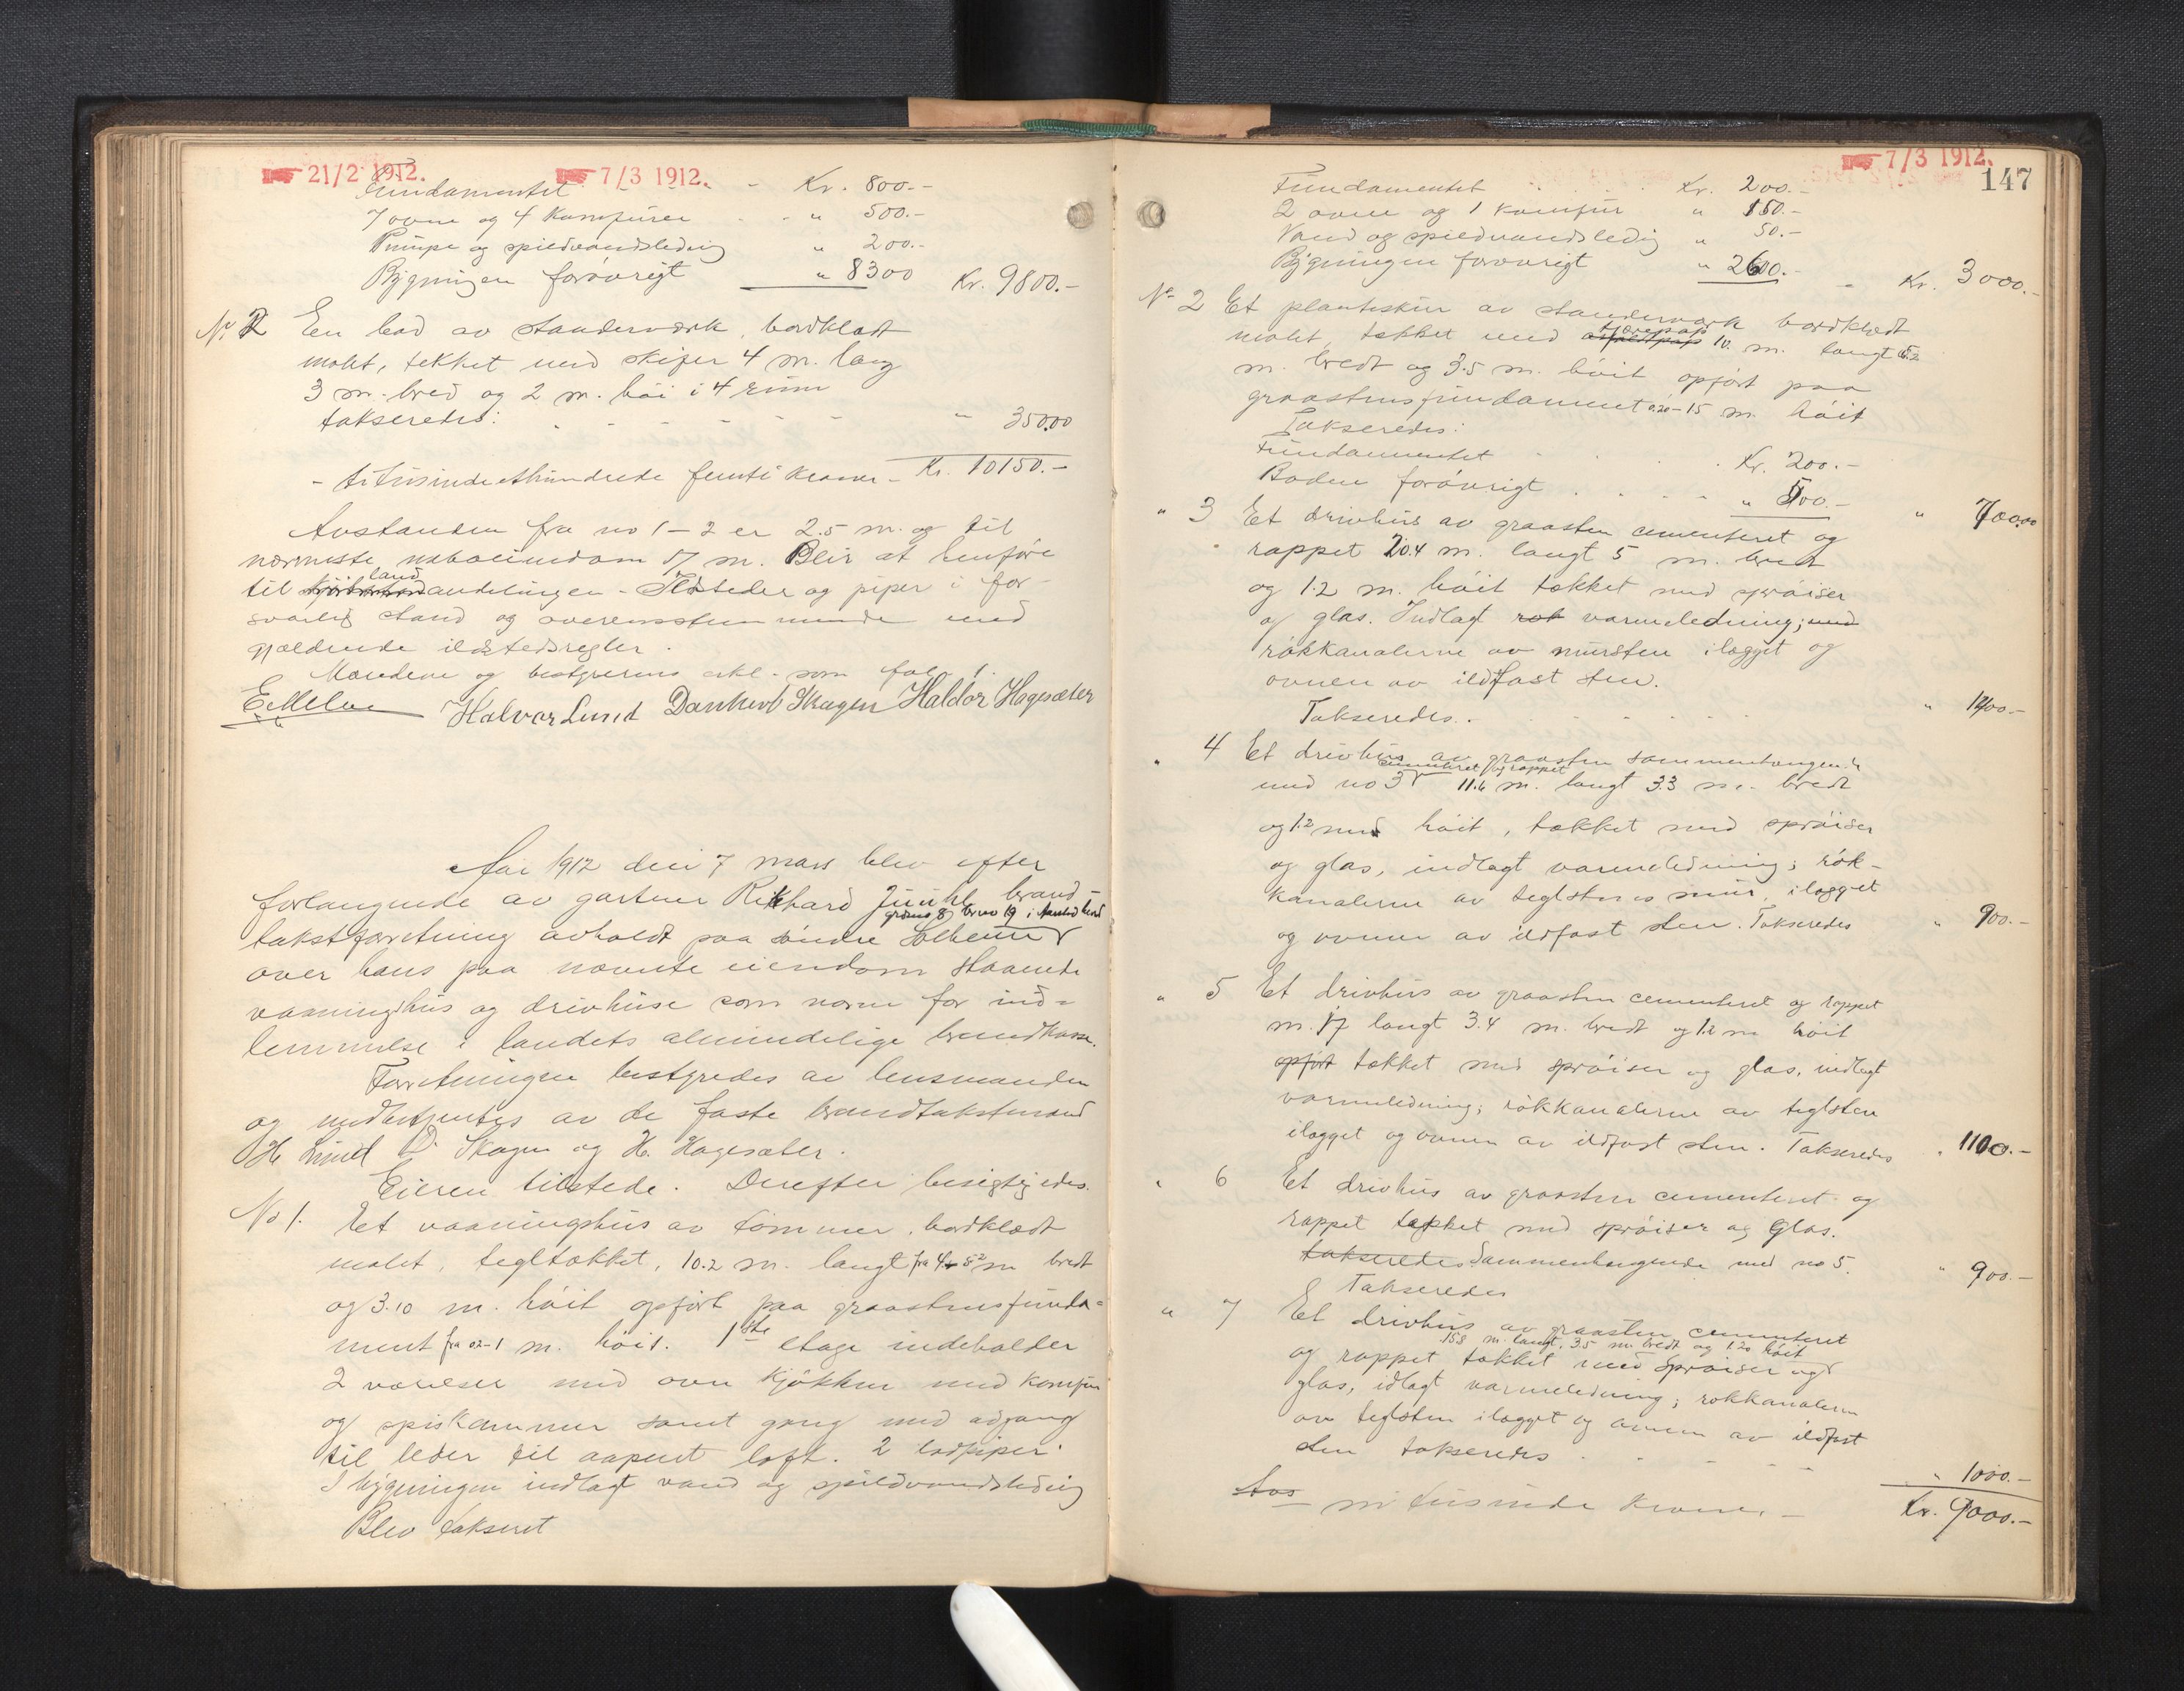 21/2 1912. 7/3 1912.
Fundamentet Kr. 800.-
7 ovne og 4 komfurer " 500.-
Pumpe og spildvandsledning " 200.-
Bygningen forøvrigt " 8300 Kr. 9800.-
No 2 En bod av standerverk, bordklædt
malet, tekket med skifer 4 m. lang
3 m. bred og 2 m. høi i 4 rum
takseredes: " 350.00
- titusindeethundrede femti kroner - Kr. 10150.-
Avstanden fra no 1-2 er 2.5 m. og til
nærmeste naboeiendom 17 m. Blir at henføre
til land avdelingen - Ildsteder og piper i for-
svarlig stand og overensstemmende med
gjældende ildstedsregler.
Mændene og bestyrerens erkl. som fol. 1.
Halvor Lund Dankert Skagen Haldor Hagesæter
Aar 1912 den 7 mars blev efter
forlangende av gartner Rikhard Juuhl brand-
takstforretning avholdt paa søndre Solheim grdno 8 brno 19 i Aarstad herred
over hans paa nævnte eiendom staaende
vaaningshus og drivhuse som norm for ind-
lemmelse i landets almindelige brandkasse.
Forretningen bestyredes av lensmanden
og medbetjentes av de faste brandtakstmænd
H. Lund D. Skagen og H. Hagesæter.
Eieren tilstede. Derefter besigtigedes.
No 1. Et vaaningshus av tømmer, bordklædt
malet, tegltækket, 10.2 m. langt fra 4 - 8² m bredt
og 3.10 m. høit opført paa graastensfunda-
ment fra 02-1 m. høit. 1ste etage indeholder
2 værelser med ovn kjøkken med komfur
og spiskammer samt gang med adgang
til leder til aapent loft. 2 lodpiper.
I bygningen indlagt vand og spildvandsledning
Blev takseret
7/3 1912.
147
Fundamentet Kr. 200.-
2 ovne og 1 komfur " 150.-
Vand og spildvandsledig " 50.-
Bygningen forøvrigt " 2600.- Kr. 3000.-
No 2 Et planteskur av standerverk bordklædt
malet, tækket med asfaltpap tjærepap 10. m. langt 5.2
m. bredt og 3.5 m. høit opført paa
graastensfundament 0.20-15 m. høit
Takseredes:
Fundamentet Kr. 200.-
Boden forøvrigt " 500.- " 700.00
" 3 Et drivhus av graasten cementeret og
rappet 20.4 m. langt 5 m. bredt
og 1.2 m. høit tækket med sprøiser
og glas. Indlagt røk varmeledning; med
røkkanalerne av mursten ilagget og
ovnen av ildfast sten.
Takseredes. " 1400.-
" 4 Et drivhus av graasten sammenhængende
med no 3 cementeret og rappet 11.6 m. langt 3.3 m. bredt
og 1.2 med høit, tækket med sprøiser
og glas, indlagt varmeledning; røk-
kanalerne av teglstens mur, ilagget
og ovnen av ildfast sten. Takseredes " 900.-
" 5 Et drivhus av graasten cementeret og rappet
m. 17 langt 3.4 m. bredt og 1.2 m høit
opført tækket med sprøiser og glas, indlagt
varmeledning; røkkanalerne av teglsten
ilagget og ovnen av ildfast sten. Takseredes " 1100.-
" 6 Et drivhus av graasten cementeret og
rappet tækket med sprøiser og glas.
takseredes Sammenhængende med no 5.
Takseredes " 900.-
" 7 Et drivhus av graasten cementeret
158 m. langt, 3.5 m. bredt og 1.20 høit
og rappet tækket med sprøiser og
glas, idlagt varmeledning; røkkanalerne
av teglsten ilagget og ovnen av ildfast
sten takseredes " 1000.-
Avs ni tusinde kroner. - Kr. 9000.-